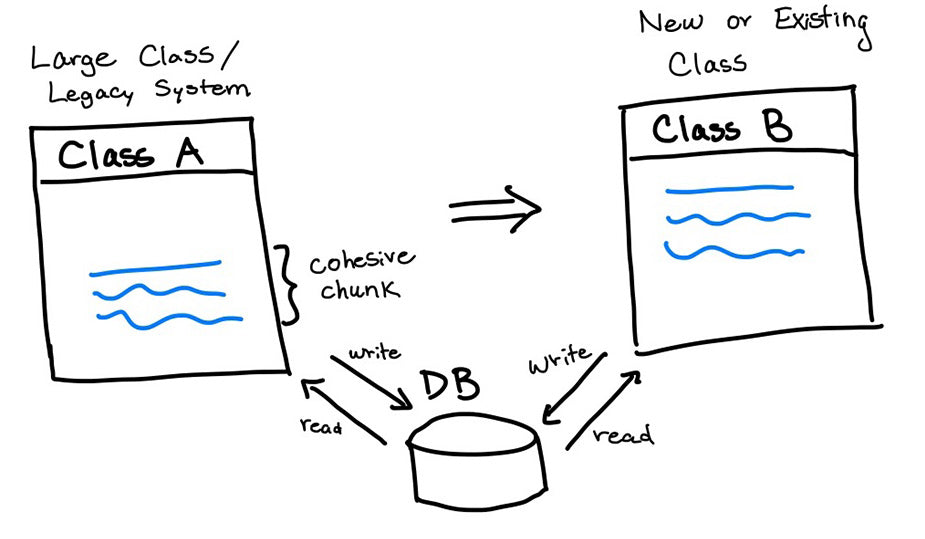 Large Class/
Legacy System
Class A
cohesive
chunk
New or Existing
Class
Class B
write
read
DB
write
read